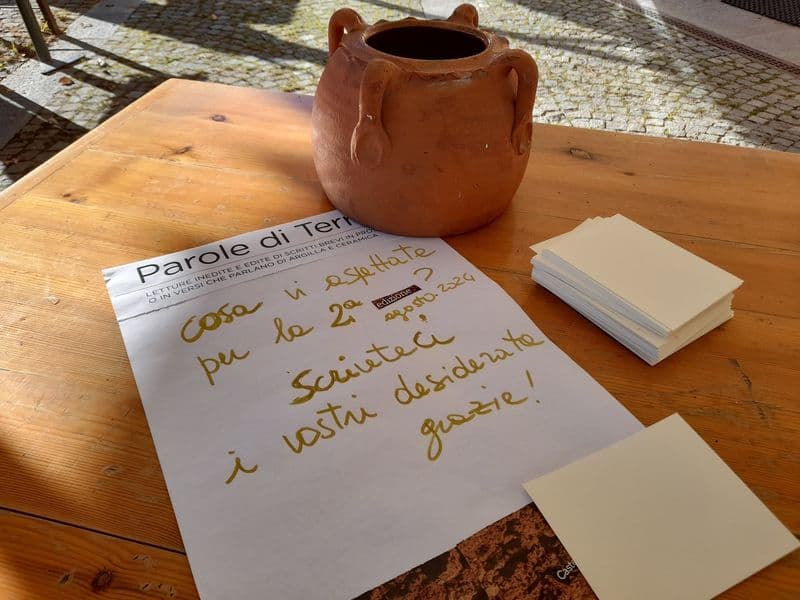 Parole di Terr
LETTURE INEDITE E EDITE DI SCRITTI BREVI IN PRO
O IN VERSI CHE PARLANO DI ARGILLA E CERAMICA
cosa vi aspettate
per la 2a edizione ?
agosto 2024
Scriveteci
i vostri desiderata
grazie!
Caste